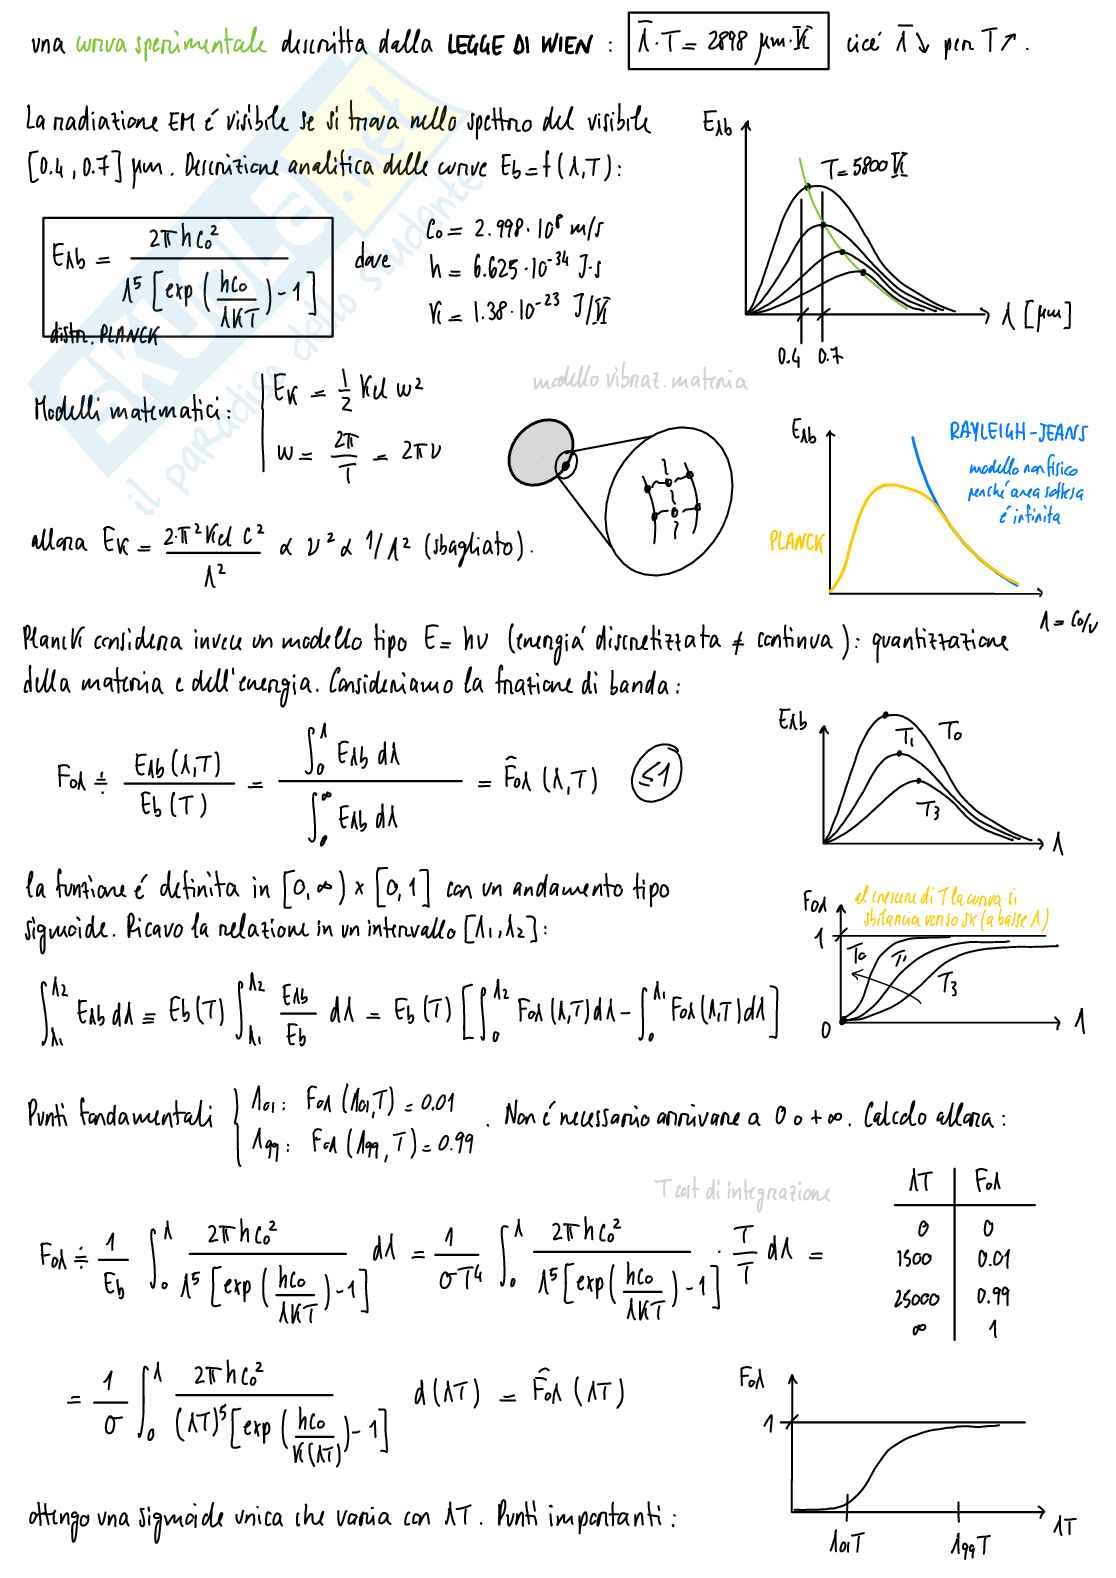 una curva sperimentale descritta dalla LEGGE DI WIEN : λ̄·T = 2898 μm·K cioé λ̄↘ per T↗.
La radiazione EM é visibile se si trova nello spettro del visibile
[0.4, 0.7] μm. Descrizione analitica delle curve Eb = f(λ,T):
Eλb
T=5800K
0.4 0.7
λ [μm]
Eλb = 2πhc₀² / λ⁵[exp(hc₀/λKT)-1]
distr. PLANCK
dove
C₀ = 2.998·10⁸ m/s
h = 6.625·10⁻³⁴ J·s
K = 1.38·10⁻²³ J/K
modello vibraz. materia
Modelli matematici:
EK = 1/2 Kel w²
w = 2π/T = 2πν
allora EK = 2·π²Kel C²/λ² ∝ ν² ∝ 1/λ² (sbagliato).
Eλb
RAYLEIGH-JEANS
modello non fisico
perché area sottesa
é infinita
PLANCK
λ = C₀/ν
Planck considera invece un modello tipo E = hν (energiá discretizzata ≠ continua): quantizzazione
della materia e dell'energia. Consideriamo la frazione di banda:
F₀λ ≐ Eλb(λ,T)/Eb(T) = ∫₀^λ Eλb dλ / ∫₀^∞ Eλb dλ = F̂₀λ (λ,T) ≤1
Eλb
T₀
T₁
T₃
λ
la funzione é definita in [0,∞) x [0,1] con un andamento tipo
sigmoide. Ricavo la relazione in un intervallo [λ₁,λ₂]:
F₀λ
al crescere di T la curva si
sbilancia verso sx (a basse λ)
1
T₀ T₁
T₃
0
λ
∫λ₁^λ₂ Eλb dλ = Eb(T) ∫λ₁^λ₂ Eλb/Eb dλ = Eb(T) [∫₀^λ₂ F₀λ(λ,T)dλ - ∫₀^λ₁ F₀λ(λ,T)dλ]
Punti fondamentali
λ₀₁: F₀λ (λ₀₁,T) = 0.01
λ₉₉: F₀λ (λ₉₉,T) = 0.99
. Non é necessario arrivare a 0 o +∞. Calcolo allora:
Tcost di integrazione
λT F₀λ
0 0
1500 0.01
25000 0.99
∞ 1
F₀λ ≐ 1/Eb ∫₀^λ 2πhc₀² / λ⁵[exp(hc₀/λKT)-1] dλ = 1/σT⁴ ∫₀^λ 2πhc₀² / λ⁵[exp(hc₀/λKT)-1] · T/T dλ =
= 1/σ ∫₀^λ 2πhc₀² / (λT)⁵[exp(hc₀/K(λT))-1] d(λT) = F̂₀λ (λT)
F₀λ
1
λ₀₁T
λ₉₉T
λT
ottengo una sigmoide unica che varia con λT. Punti importanti:
skuola.net
il paradiso dello studente